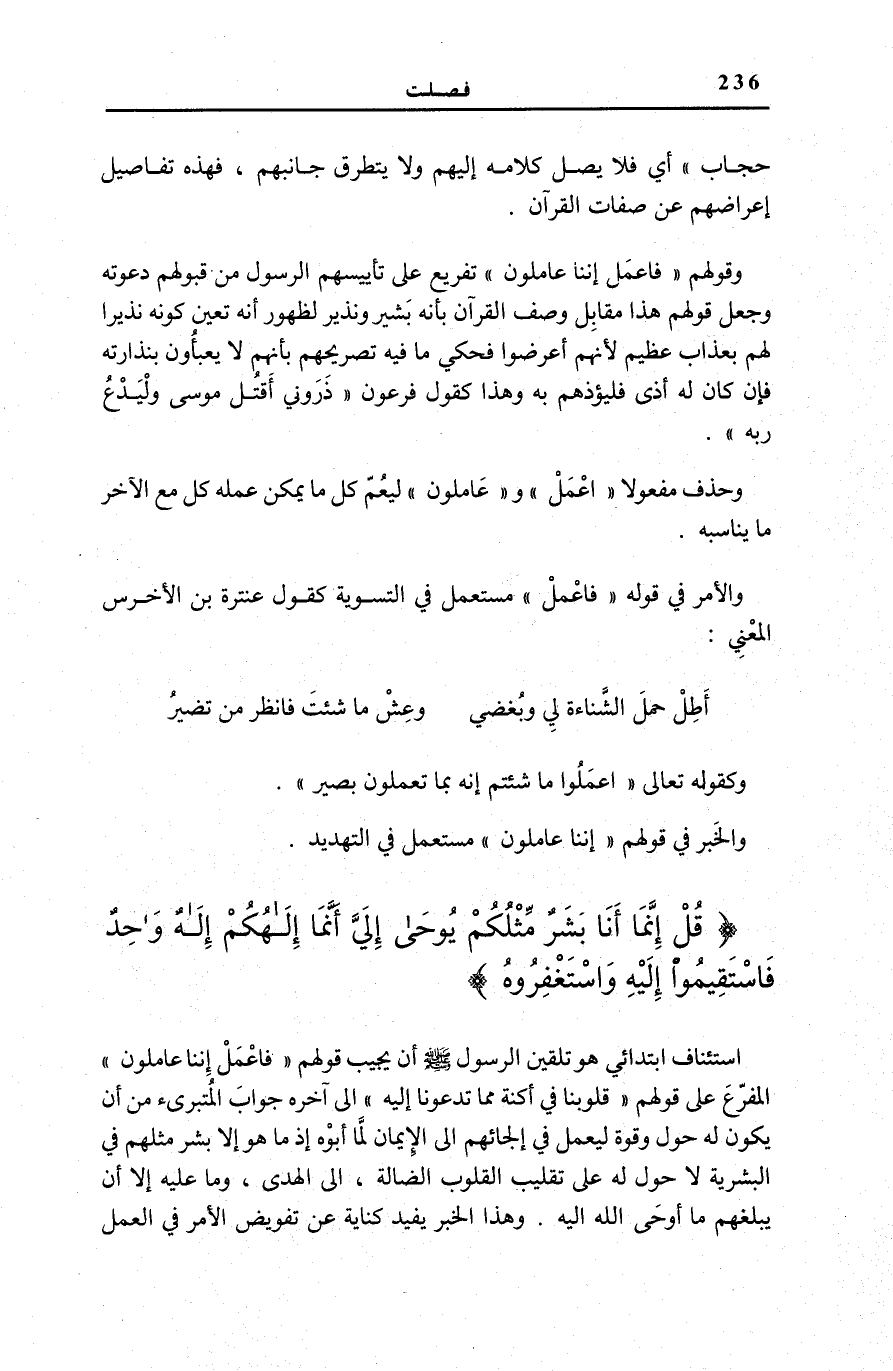 236
فصلت
حجاب » أي فلا يصل كلامه إليهم ولا يتطرق جانبهم ، فهذه تفاصيل
إعراضهم عن صفات القرآن .
وقولهم « فاعمَل إننا عاملون » تفريع على تأييسهم الرسول من قبولهم دعوته
وجعل قولهم هذا مقابِل وصف القرآن بأنه بَشير ونذير لظهور أنه تعين كونه نذيرا
لهم بعذاب عظيم لأنهم أعرضوا فحكي ما فيه تصريحهم بأنهم لا يعبأُون بنذارته
فإن كان له أذى فليؤذهم به وهذا كقول فرعون « ذَروني أَقتُل موسى ولْيَدْعُ
ربه » .
وحذف مفعولا « اعْمَلْ » و « عَاملون » ليعُمّ كل ما يمكن عمله كل مع الآخر
ما يناسبه .
والأمر في قوله « فاعْملْ » مستعمل في التسوية كقول عنترة بن الأخرس
المعْنِي :
أَطِلْ حملَ الشَّناءة لِي وبُغضي وعِشْ ما شئتَ فانظر من تضيرُ
وكقوله تعالى « اعمَلُوا ما شئتم إنه بما تعملون بصير » .
والخَبر في قولهم « إننا عاملون » مستعمل في التهديد .
﴿ قُلْ إِنَّمَا أَنَا بَشَرٌ مِّثْلُكُمْ يُوحَىٰ إِلَيَّ أَنَّمَا إِلَـٰهُكُمْ إِلَـٰهٌ وَٰحِدٌ
فَاسْتَقِيمُواْ إِلَيْهِ وَاسْتَغْفِرُوهُ ﴾
استئناف ابتدائي هو تلقين الرسول ﷺ أن يجيب قولهم « فاعْمَلْ إننا عاملون »
المفرّعَ على قولهم « قلوبنا في أكنة مما تدعونا إليه » الى آخره جوابَ المُتبرىء من أن
يكون له حول وقوة ليعمل في إلجائهم الى الإِيمان لَمَّا أبوْه إذ ما هو إلا بشر مثلهم في
البشرية لا حول له على تقليب القلوب الضالة ، الى الهدى ، وما عليه إلا أن
يبلغهم ما أوحَى الله اليه . وهذا الخبر يفيد كناية عن تفويض الأمر في العمل